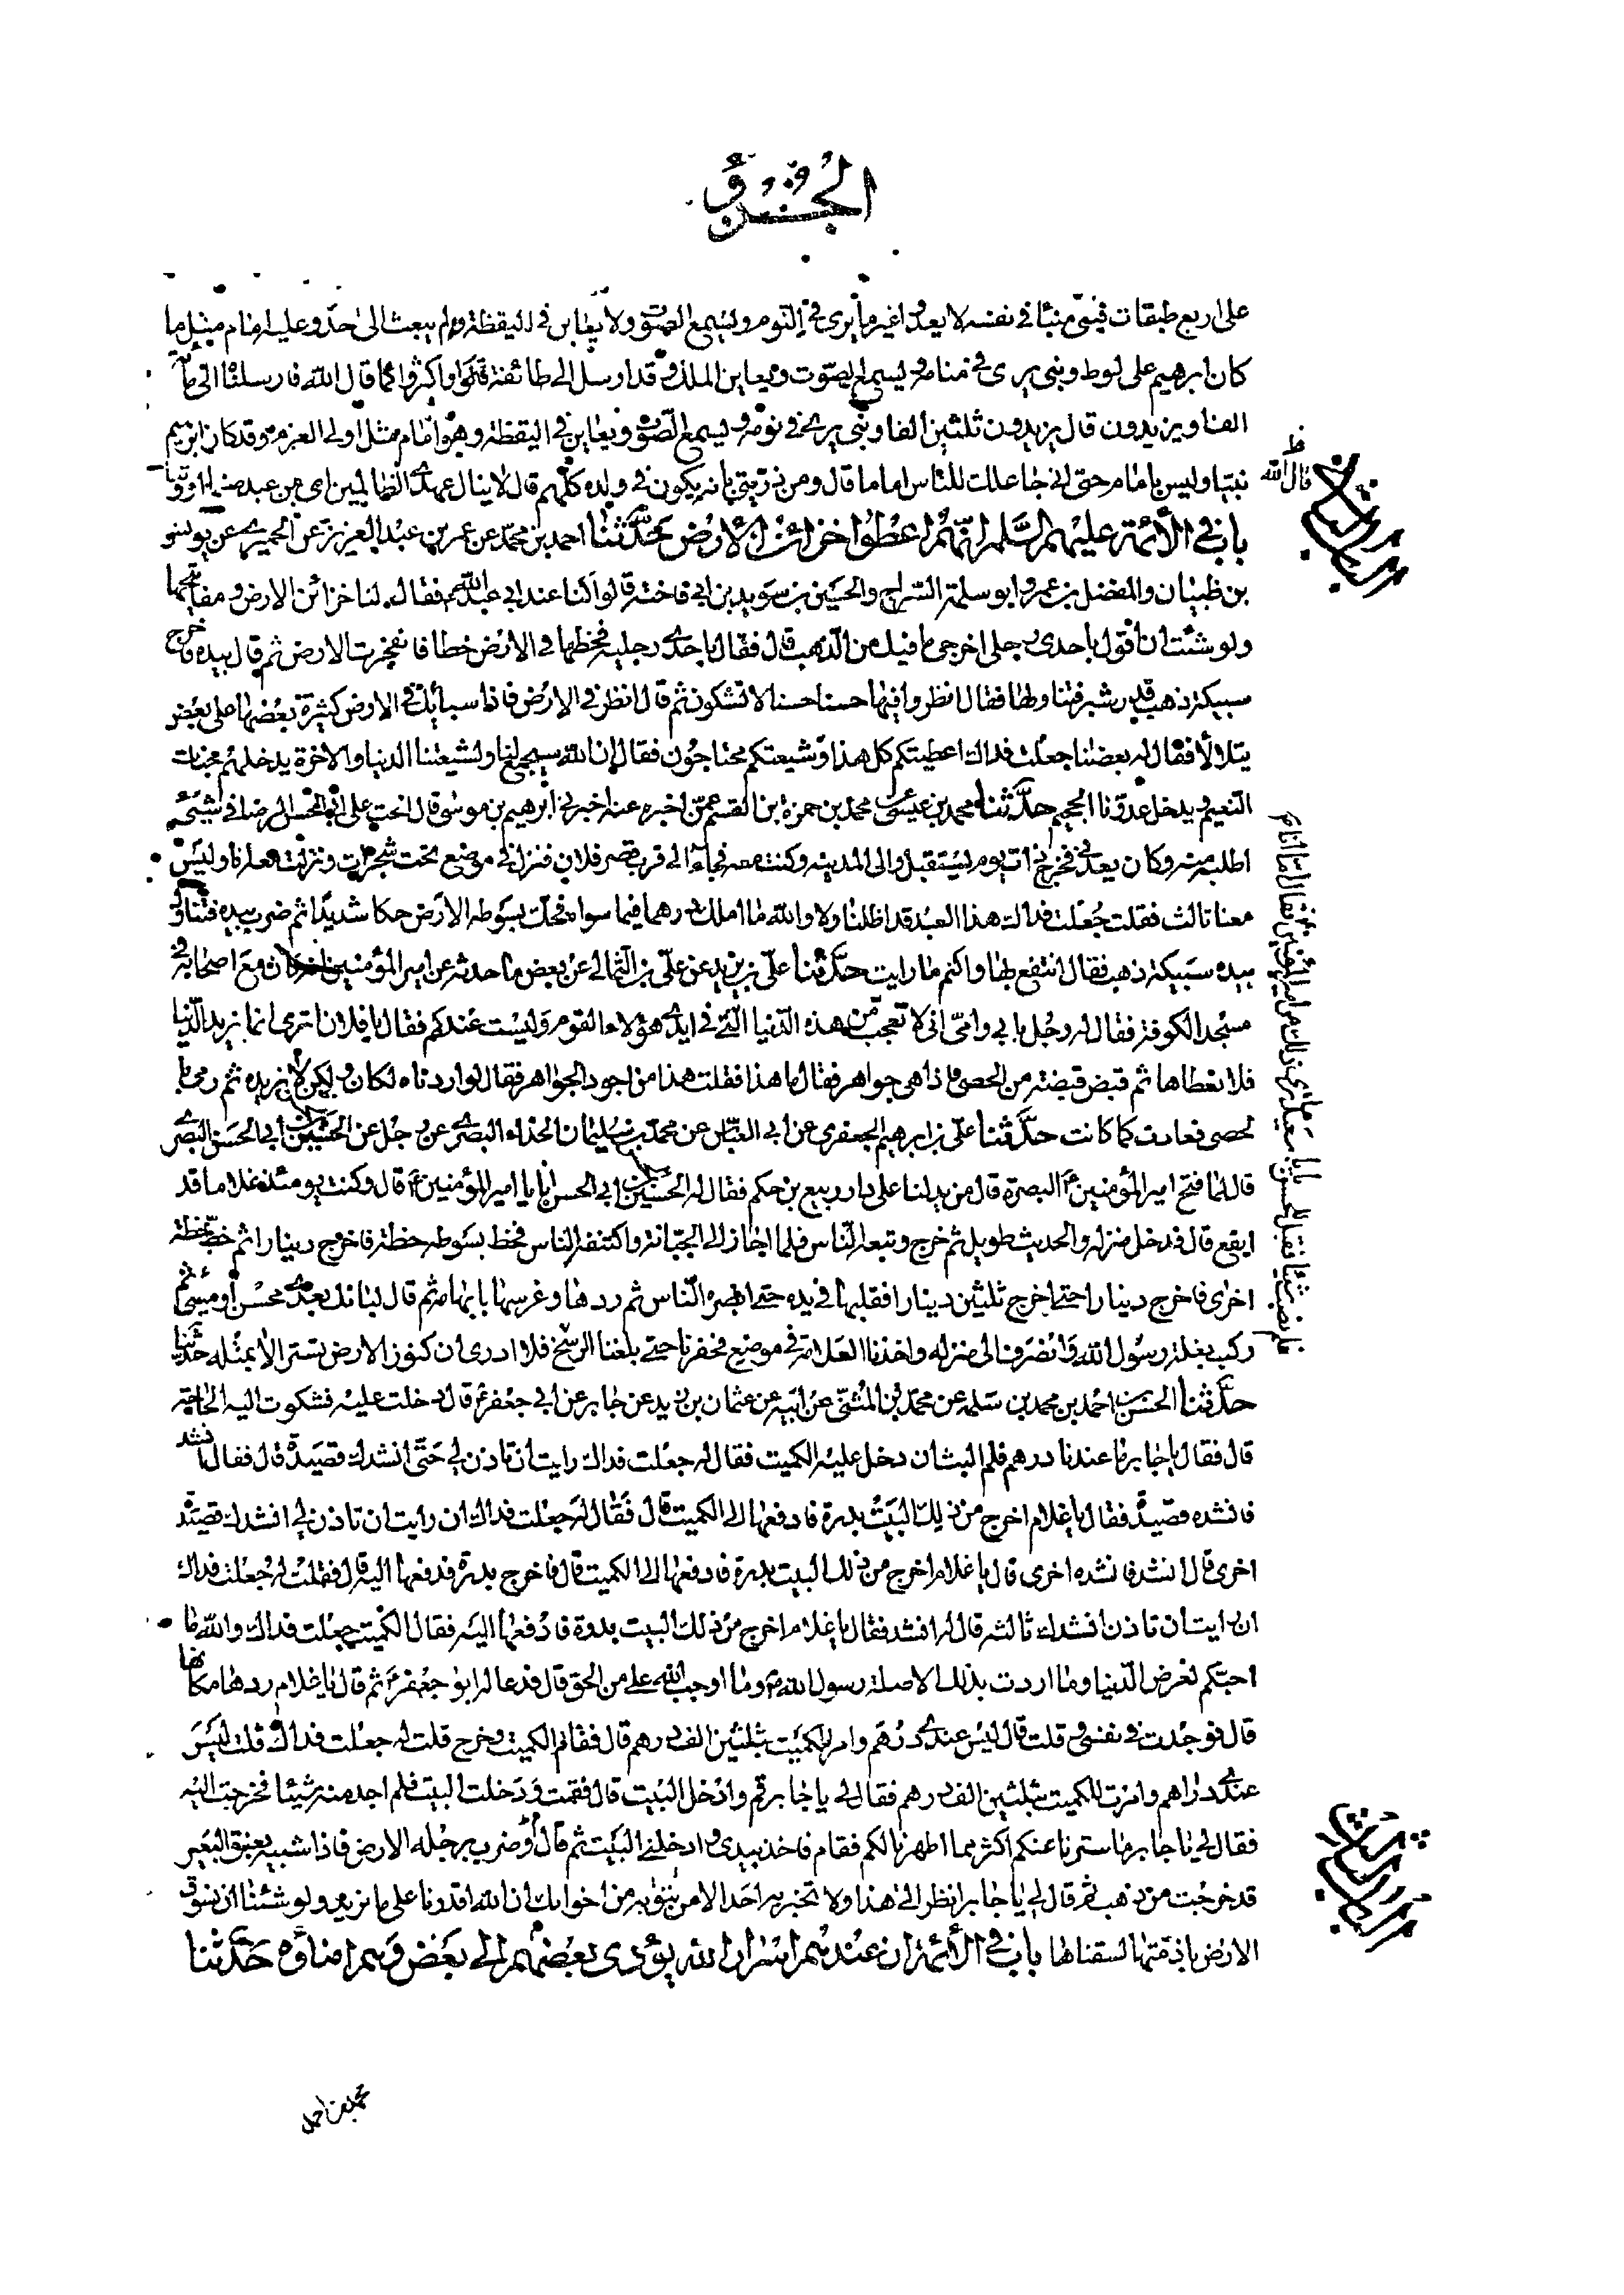 على اربع طبقات فنبى منبّأ فى نفسه لا يعدوا غيرها يرى فى النّوم ويسمع الصّوت ولا يعاين فى اليقظة ولم يبعث الى احد وعليه امام مثل ما
كان ابرهيم على لوط ونبى يرى فى منامه ويسمع الصّوت ويعاين الملك وقد ارسل الى طائفة قلّوا او اكثروا كما قال الله فارسلناه الى مائة
الف او يزيدون قال يزيدون ثلثين الفا ونبى يرى فى نومه ويسمع الصّوت ويعاين فى اليقظة وهو امام مثل اولى العزم وقد كان ابرهيم
نبيّا وليس بامام حتى انى جاعلك للنّاس اماما قال ومن ذرّيتى بانه يكون فى ولده كلّهم قال لا ينال عهدى الظالمين اى من عبد صنما او وثنا
قال الله
باب فى الأئمة عليهم السّلم انّهم اعطوا خزائن الارض حدّثنا احمد بن محمّد عن عمر بن عبد العزيز عن الحميرى عن يونس
بن ظبيان والمفضل بن عمر وابو سلمة السّراج والحسين بن سويد بن ابى فاخته قالوا كنا عند ابى عبد الله فقال لنا خزائن الارض ومفاتيحها
ولو شئت ان اقول باحدى رجلى اخرجى ما فيك من الذّهب قال فقال باحدى رجليه فخطها فى الارض خطا فانفجرت الارض ثم قال بيده فاخرج
سبيكة ذهب قدر شبر فتناولها فقال انظروا فيها حسنا حسنا لا تشكون ثم قال انظر فى الارض فاذا سبائك فى الارض كثيرة بعضها على بعض
يتلالأ فقال له بعضنا جعلت فداك اعطيتكم كل هذا وشيعتكم محتاجون فقال ان الله سيجمع لنا ولشيعتنا الدنيا والاخرة يدخلهم جنات
النعيم ويدخل عدوّنا الجحيم حدّثنا محمد بن عيسى عن محمد بن حمزة بن القسم عمّن اخبره عنه اخبرنى ابرهيم بن موسى قال الحت على ابى الحسن الرضا فى شئ
اطلبه منه وكان يعدنى فخرج ذات يوم ليستقبل والى المدينه وكنت معه فجاء الى قرب قصر فلان فنزل فى موضع تحت شجرات ونزلت معه انا وليس
معنا ثالث فقلت جعلت فداك هذا العيد قد اظلنا ولا والله ما املك درهما فيما سواه فحك بسوطه الارض حكا شديدا ثم ضرب بيده فتناول
بيده سبيكة ذهب فقال انتفع بها واكتم ما رايت حدّثنا علىّ بن يزيد عن علىّ بن الثمالى عن بعض ما حدثه عن امير المؤمنين كان مع اصحابه فى
مسجد الكوفة فقال له رجل بابى وامّى انى لا تعجب من هذه الدّنيا الّتى فى ايدى هؤلاء القوم وليست عندكم فقال يا فلان اترى انما نريد الدّنيا
فلا نعطاها ثم قبض قبضة من الحصى فاذا هى جواهر فقال ما هذا فقلت هذا من اجود الجواهر فقال لو اردناه لكان ولكن لا نريده ثم رمى با
لحصى فعادت كما كانت حدّثنا علىّ بن ابرهيم الجعفرى عن ابى العبّاس عن محمّد بن سليمان الحذاء البصرى عن رجل عن الحسين بن ابى الحسن البصرى
قال لما فتح امير المؤمنين ع البصرة قال من يدلنا على دار ربيع بن حكم فقال له الحسين بن ابى الحسن انا يا امير المؤمنين ع قال وكنت يومئذ غلاما قد
ايفع قال فدخل منزله والحديث طويل ثم خرج وتبعه النّاس فلما اجاز الى الجبّانة واكتنفه الناس فخط بسوطه خطة فاخرج دينارا ثم خطّ خطة
اخرى فاخرج دينارا حتى اخرج ثلثين دينارا فقلبها فى يده حتى ابصره النّاس ثم ردها وغرسها بابهامه ثم قال ليأتك بعدى محسن او مسئ ثم
ركب بغلة رسول الله وانصرف الى منزله واخذنا العلامة فى موضع فحفرنا حتى بلغنا الرسخ فلا ادرى ان كنوز الارض تستر الا بمثله
حدّثنا الحسن بن احمد بن محمد بن سلمه عن محمّد بن المثنّى عن ابيه عن عثمان بن زيد عن جابر عن ابى جعفر ع قال دخلت عليه فشكوت اليه الحاجة
قال فقال يا جابر ما عندنا درهم فلم البث ان دخل عليه الكميت فقال له جعلت فداك رايت ان تاذن لى حتّى انشدك قصيدة قال فقال انشد
فانشده قصيدة فقال يا غلام اخرج من ذلك البيت بدرة فادفعها الى الكميت قال فقال له جعلت فداك ان رايت ان تاذن لى انشدك قصيدة
اخرى قال انشد فانشده اخرى قال يا غلام اخرج من ذلك البيت بدرة فادفعها الى الكميت قال فاخرج بدرة فدفعها اليه قال فقلت له جعلت فداك
ان رايت ان تاذن انشدك ثالثه قال له انشد فقال يا غلام اخرج من ذلك البيت بدرة فادفعها اليه فقال الكميت جعلت فداك والله ما
احبّكم لغرض الدّنيا وما اردت بذلك الا صلة رسول الله ص وما اوجب الله علىّ من الحق قال فدعا له ابو جعفر ع ثم قال يا غلام ردها مكانها
قال فوجدت فى نفسى وقلت قال ليس عندى درهم وامر للكميت بثلثين الف درهم قال فقام الكميت وخرج قلت له جعلت فداك قلت ليس
عندى دراهم وامرت للكميت بثلثين الف درهم فقال لى يا جابر قم وادخل البيت قال فقمت ودخلت البيت فلم اجد منه شيئا فخرجت اليه
فقال لى يا جابر ما سترنا عنكم اكثر مما اظهرنا لكم فقام فاخذ بيدى وادخلنى البيت ثم قال وضرب برجله الارض فاذا شبيه بعنق البعير
قد خرجت من ذهب ثم قال لى يا جابر انظر الى هذا ولا تخبر به احدا الا من تثق به من اخوانك ان الله اقدرنا على ما نريد ولو شئنا ان نسوق
الارض باذمّتها لسقناها باب فى الأئمة ان عندهم اسرار الله يؤدى بعضهم الى بعض وهم امناؤه حدّثنا
محمد بن احمد